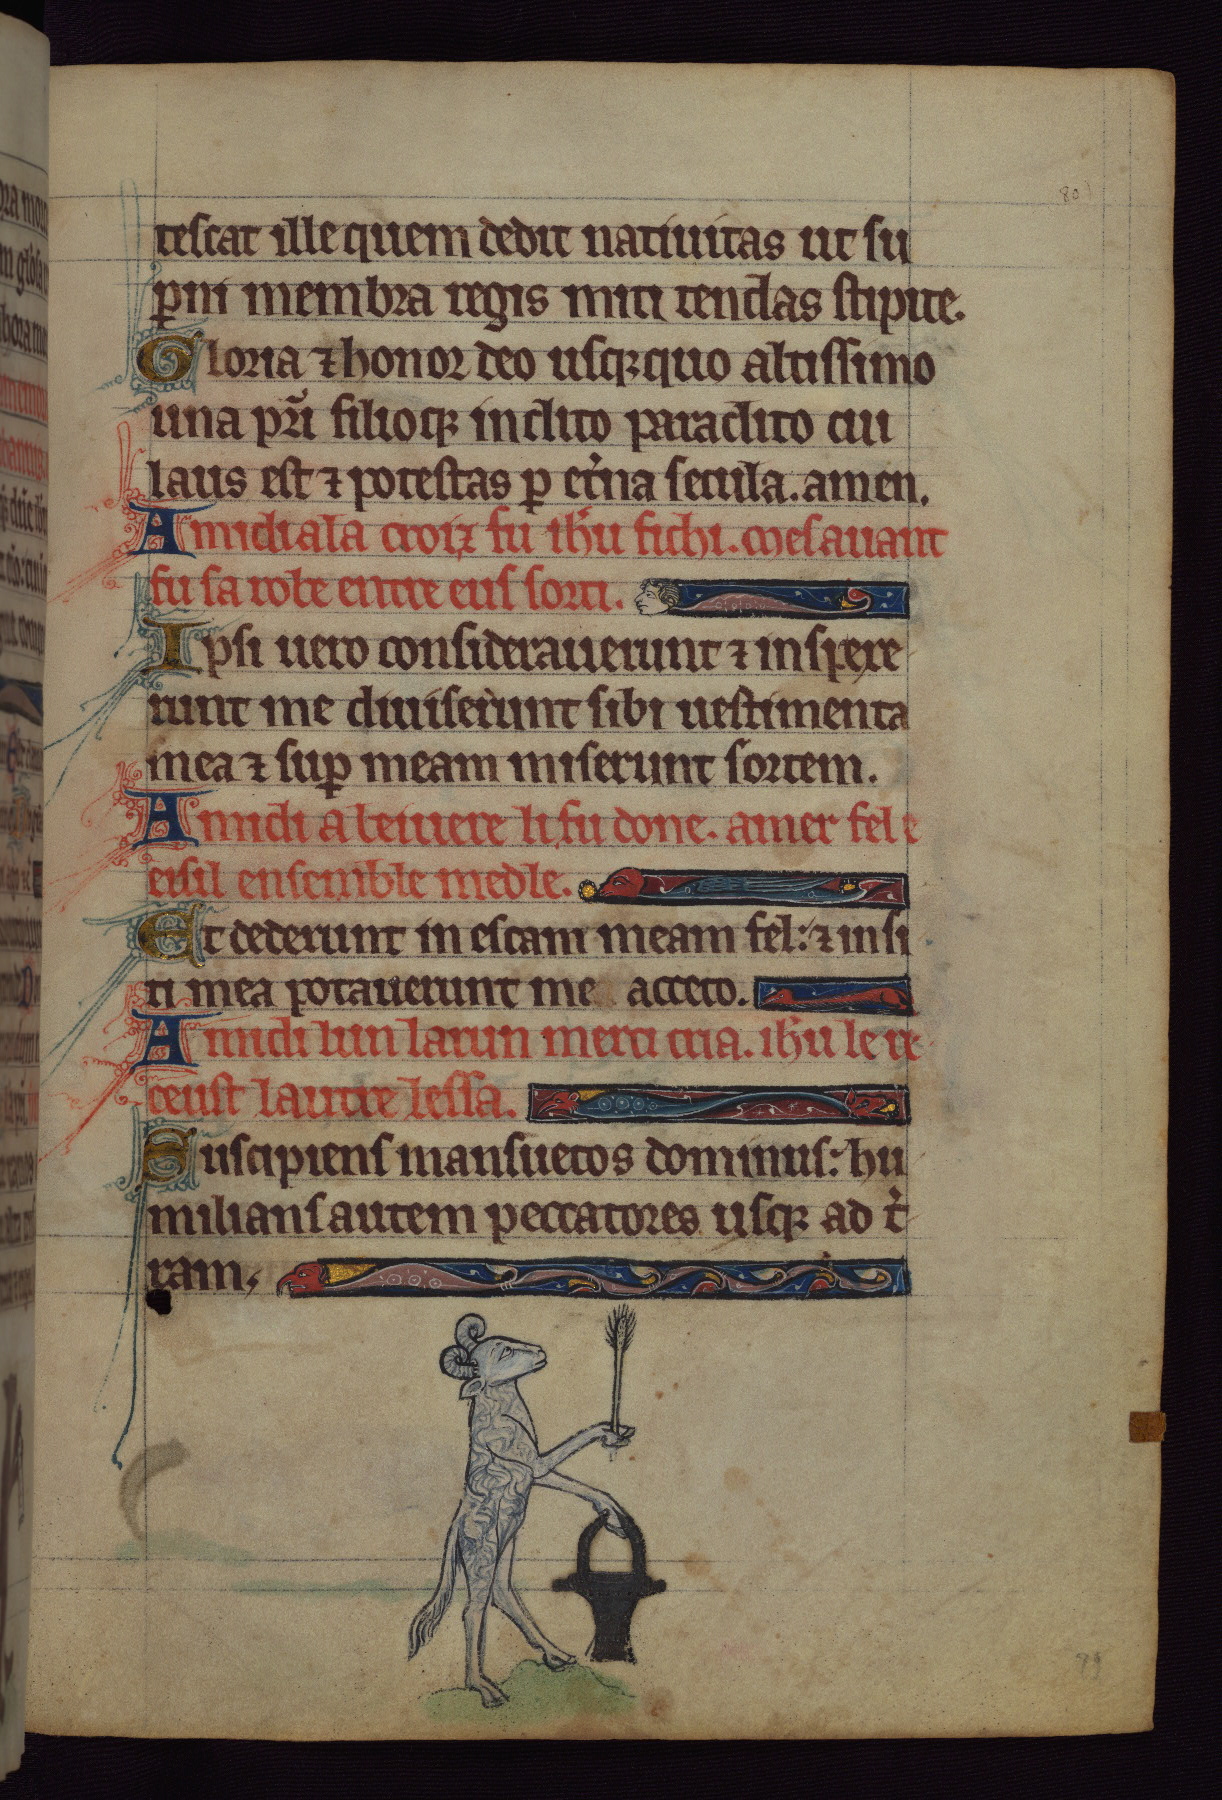 80
tescat ille quem dedit natiuitas ut su
p̄ni membra regis miti tendas stipite.
Gloria ⁊ honor deo usqꝫquo altissimo
una pr̄i filioqꝫ inclito paraclito cui
laus est ⁊ potestas p et̓na secula. amen.
A midi a la croiz fu ih̄u fichi. mes auant
fu sa robe entre eus sorti.
Ipsi uero considerauerunt ⁊ inspexe
runt me diuiser̀unt sibi uestimenta
mea ⁊ sup meam miserunt sortem.
A midi a beiuere li fu done. amer fel e
eisil ensemble medle.
Et dederunt in escam meam fel: ⁊ in si
ti mea potauerunt me acceto.
A midi lun larun merci cria. ih̄u le re
ceust lautre lessa.
Suscipiens mansuetos dominus: hu
milians autem peccatores usqꝫ ad t̓
ram.
89